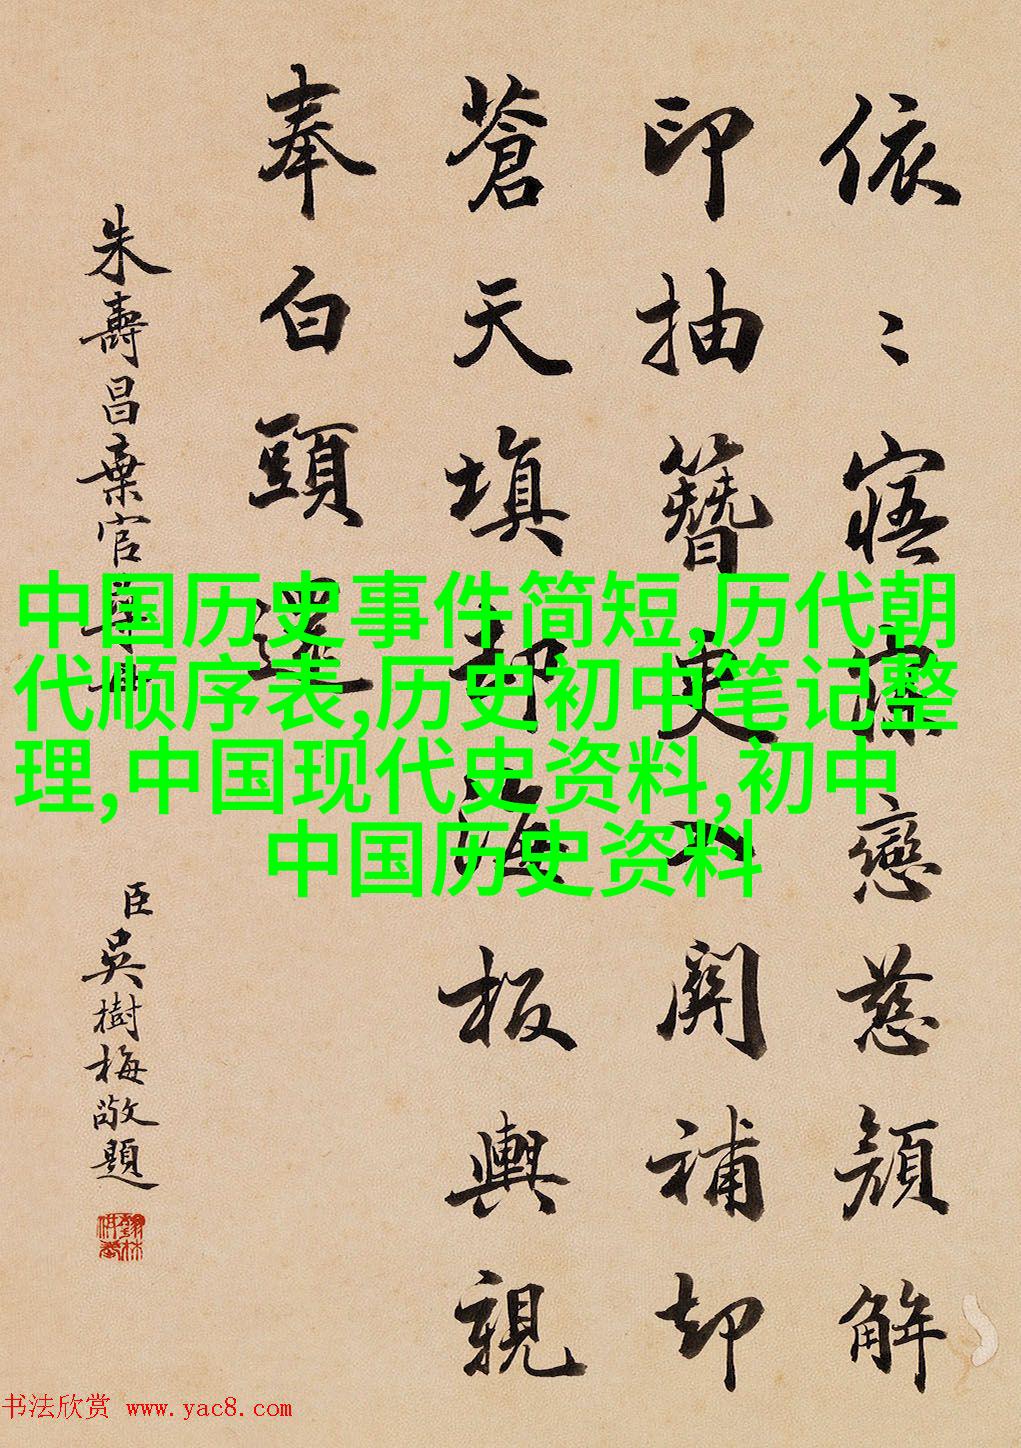 依〻寤寐戀慈顔解
印抽簪更入關補却
蒼天填却海板輿親
奉白頭還
朱壽昌棄官尋母
臣吳樹梅敬題
中国历史事件简短,历代朝
代顺序表,历史初中笔记整
理,中国现代史资料,初中
中国历史资料
书法欣赏 www.yac8.com